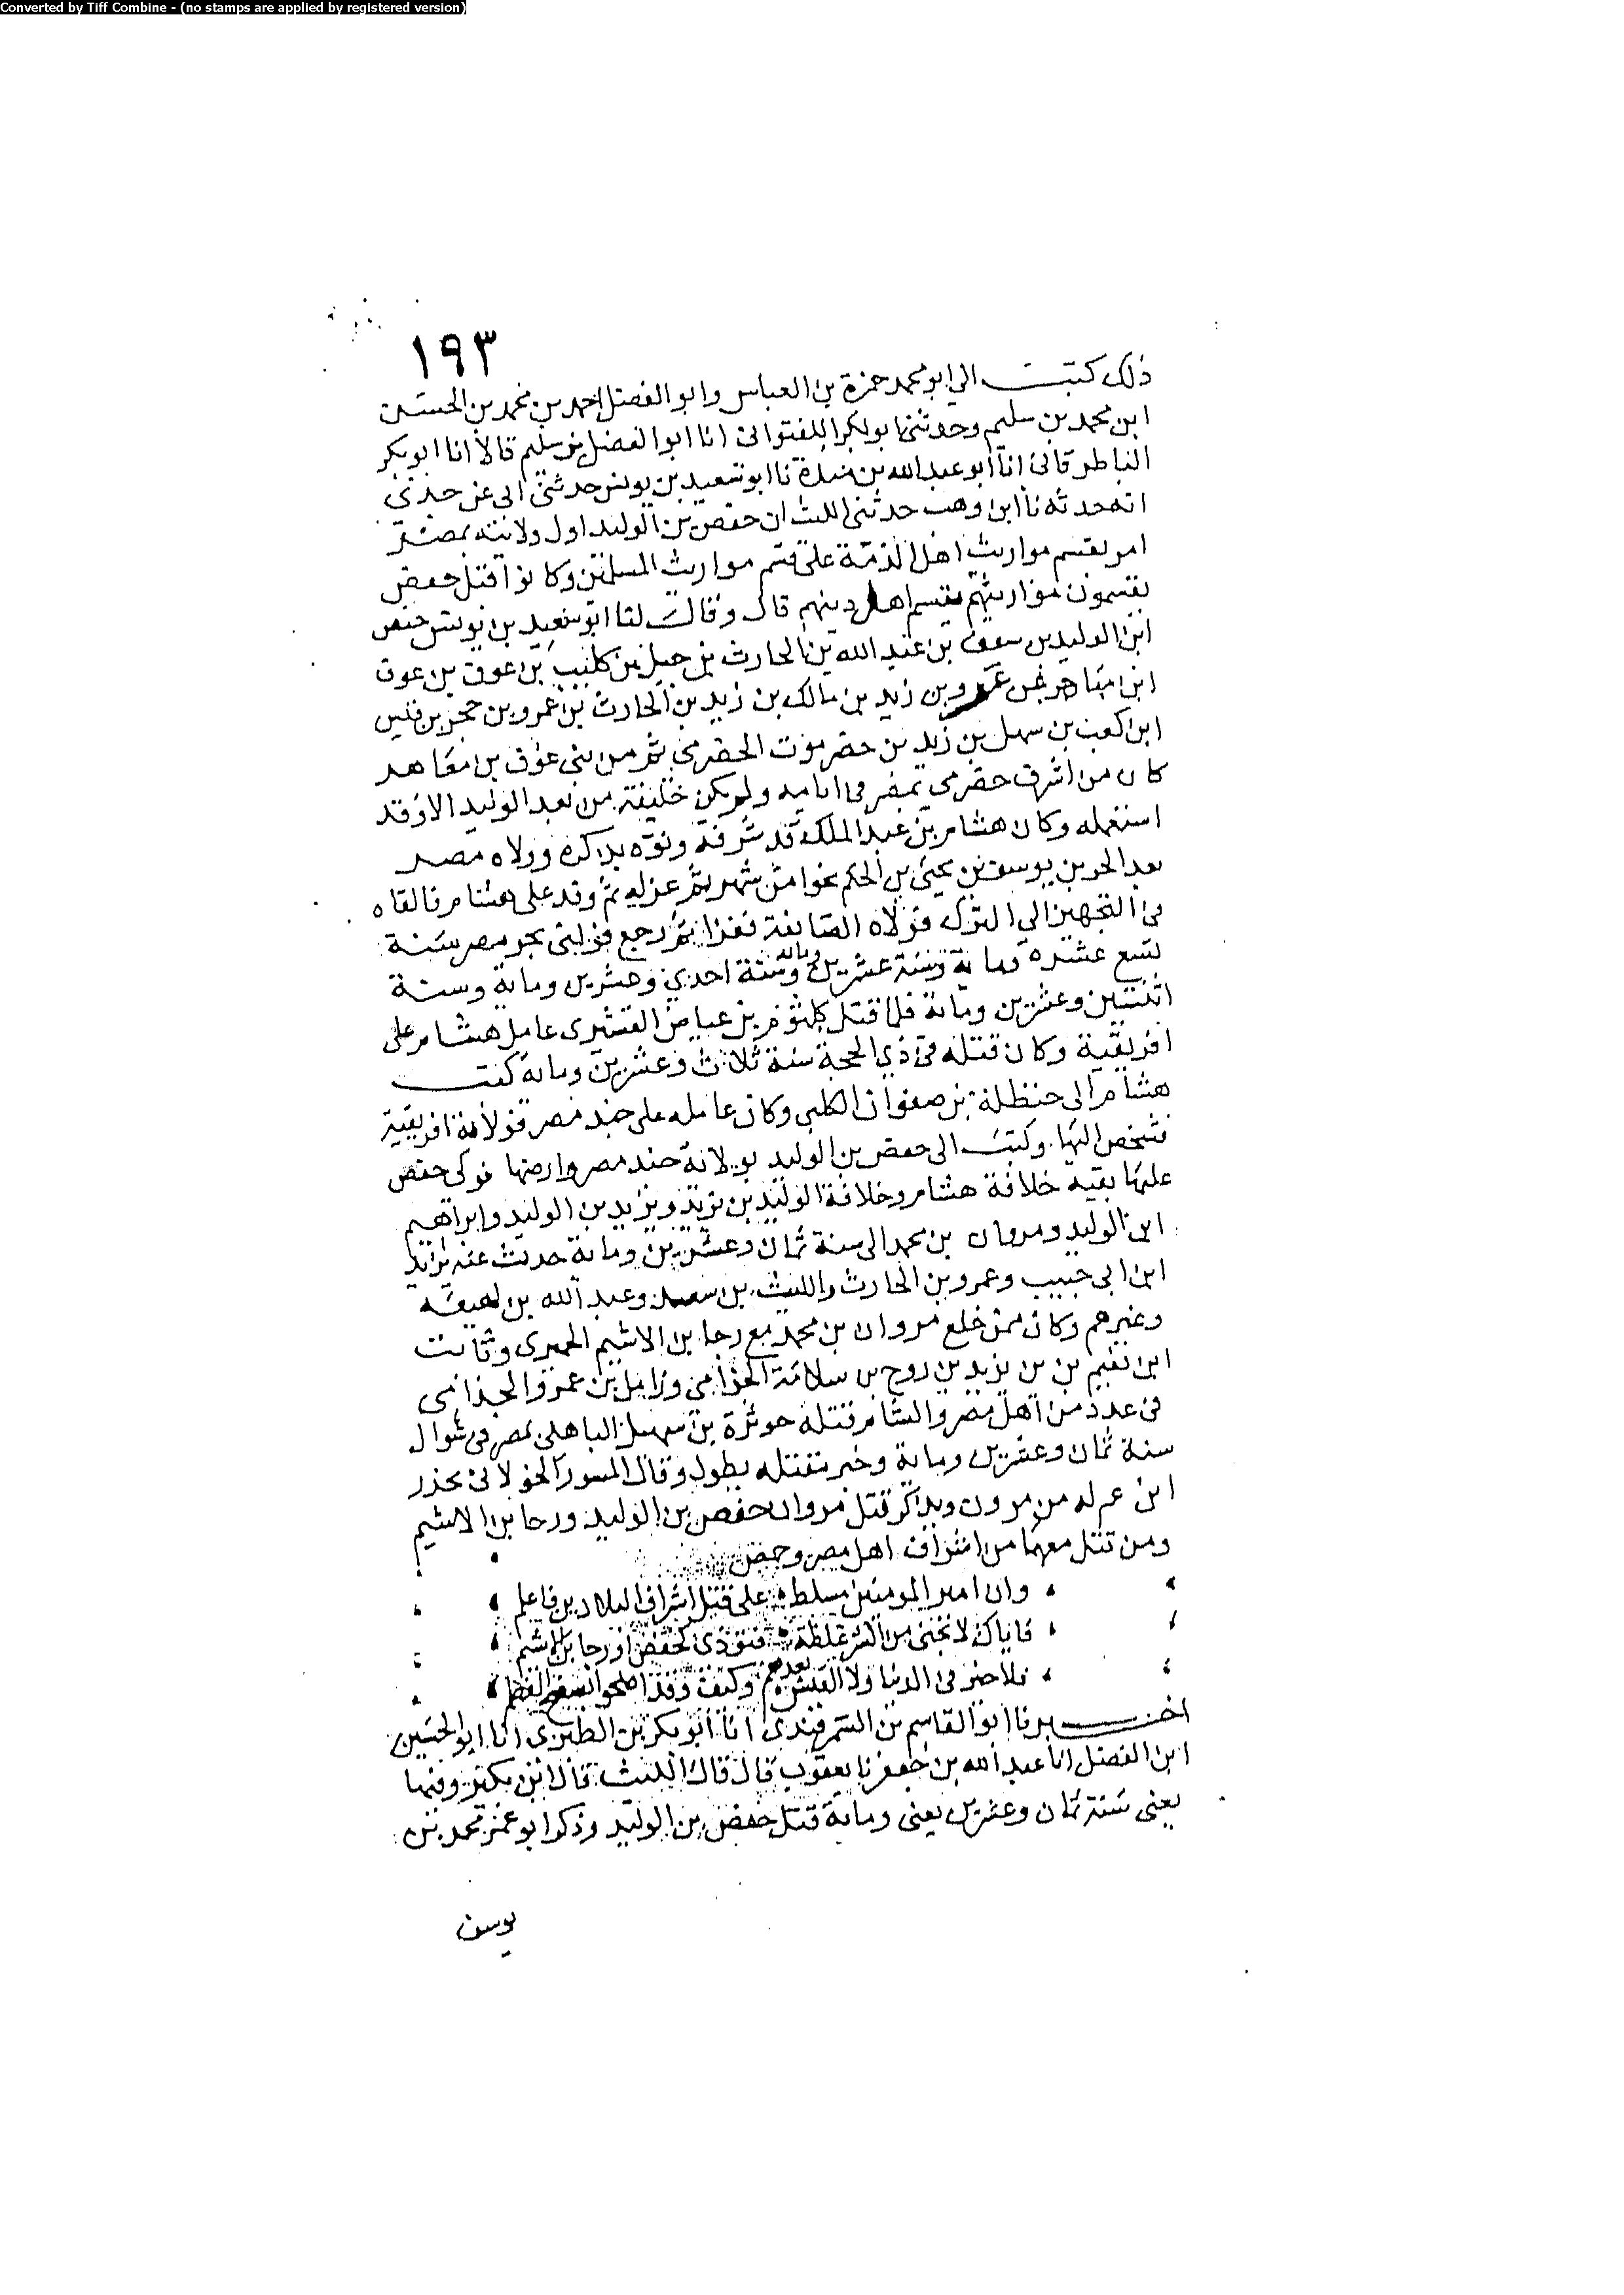 Converted by Tiff Combine - (no stamps are applied by registered version)
١٩٣
ذلك كتبت الي ابو محمد حمزة بن العباس وابو الفضل احمد بن محمد بن الحسين
ابن محمد بن سليم وحدثني ابو بكر اللفتواني انا ابو الفضل بن سليم قالا انا ابو بكر
الباطرقاني انا ابو عبد الله بن مندة نا ابو سعيد بن يونس حدثني ابي عن جدي
انه حدثه نا ابن وهب حدثني الليث ان حفص بن الوليد اول ولايته بمصر
امر بقسم مواريث اهل الذمة على قسم مواريث المسلمين وكانوا قبل حفص
يقسمون مواريثهم بقسم اهل دينهم قال وقال لنا ابو سعيد بن يونس حفص
ابن الوليد بن سيف بن عبد الله بن الحارث بن جبل بن كليب بن عوف بن عوف
ابن معاهر بن عمرو بن زيد بن مالك بن زيد بن الحارث بن عمرو بن حجر بن قيس
ابن كعب بن سهل بن زيد بن حضرموت الحضرمي ثم من بني عوف بن معاهد
كان من اشرف حضرمي بمصر في ايامه ولم يكن خليفة من بعد الوليد الا وقد
استعمله وكان هشام بن عبد الملك قد شرفه ونوه بذكره وولاه مصر
بعد الحر بن يوسف بن يحيى بن الحكم نحوا من شهر ثم عزله ثم وفد على هشام فالقاه
في التجهيز الي الترك فولاه الصائفة فغزا ثم رجع فولي بحر مصر سنة
تسع عشرة وماية وسنة عشرين وماية وسنة احدي وعشرين وماية وسنة
اثنتين وعشرين وماية فلما قتل كلثوم بن عياض القشيري عامل هشام على
افريقية وكان قتله في ذي الحجة سنة ثلاث وعشرين وماية كتب
هشام الى حنظلة بن صفوان الكلبي وكان عامله على جند مصر فولاه افريقية
فشخص اليها وكتب الى حفص بن الوليد بولاية جند مصر وارضها فولي حفص
عليها بقية خلافة هشام وخلافة الوليد بن يزيد ويزيد بن الوليد وابراهيم
ابن الوليد ومروان بن محمد الى سنة ثمان وعشرين وماية حدث عنه يزيد
ابن ابي حبيب وعمرو بن الحارث والليث بن سعد وعبد الله بن لهيعة
وغيرهم وكان ممن خلع مروان بن محمد مع رجا بن الاشيم الحميري وثابت
ابن نعيم بن بن يزيد بن روح بن سلامة الجذامي وزامل بن عمرو الجذامي
في عدد من اهل مصر والشام قتله حوثرة بن سهيل الباهلي بمصر في شوال
سنة ثمان وعشرين وماية وخبر مقتله يطول وقال المسور الخولاني يحذر
ابن عم له من مرون ويذكر قتل مروان حفص بن الوليد ورجا بن الاشيم
ومن قتل معهما من اشراف اهل مصر وحمص
وان امير المومنين مسلط على قتل اشراف البلاد بن فاعلم
فاياك لا تجني من الشر غلظة فتودي كحفص او رجا بن الاشيم
فلا خير في الدنيا ولا العيش بعدهم وكيف وقد اضحوا بسفح المقطم
اخبرنا ابو القاسم بن السمرقندي انا ابو بكر بن الطبري انا ابو الحسين
ابن الفضل انا عبد الله بن جعفر نا يعقوب قال قال الليث قال ابن بكير وفيها
يعني سنة ثمان وعشرين يعني وماية قتل حفص بن الوليد وذكر ابو عمر محمد بن
يوسف